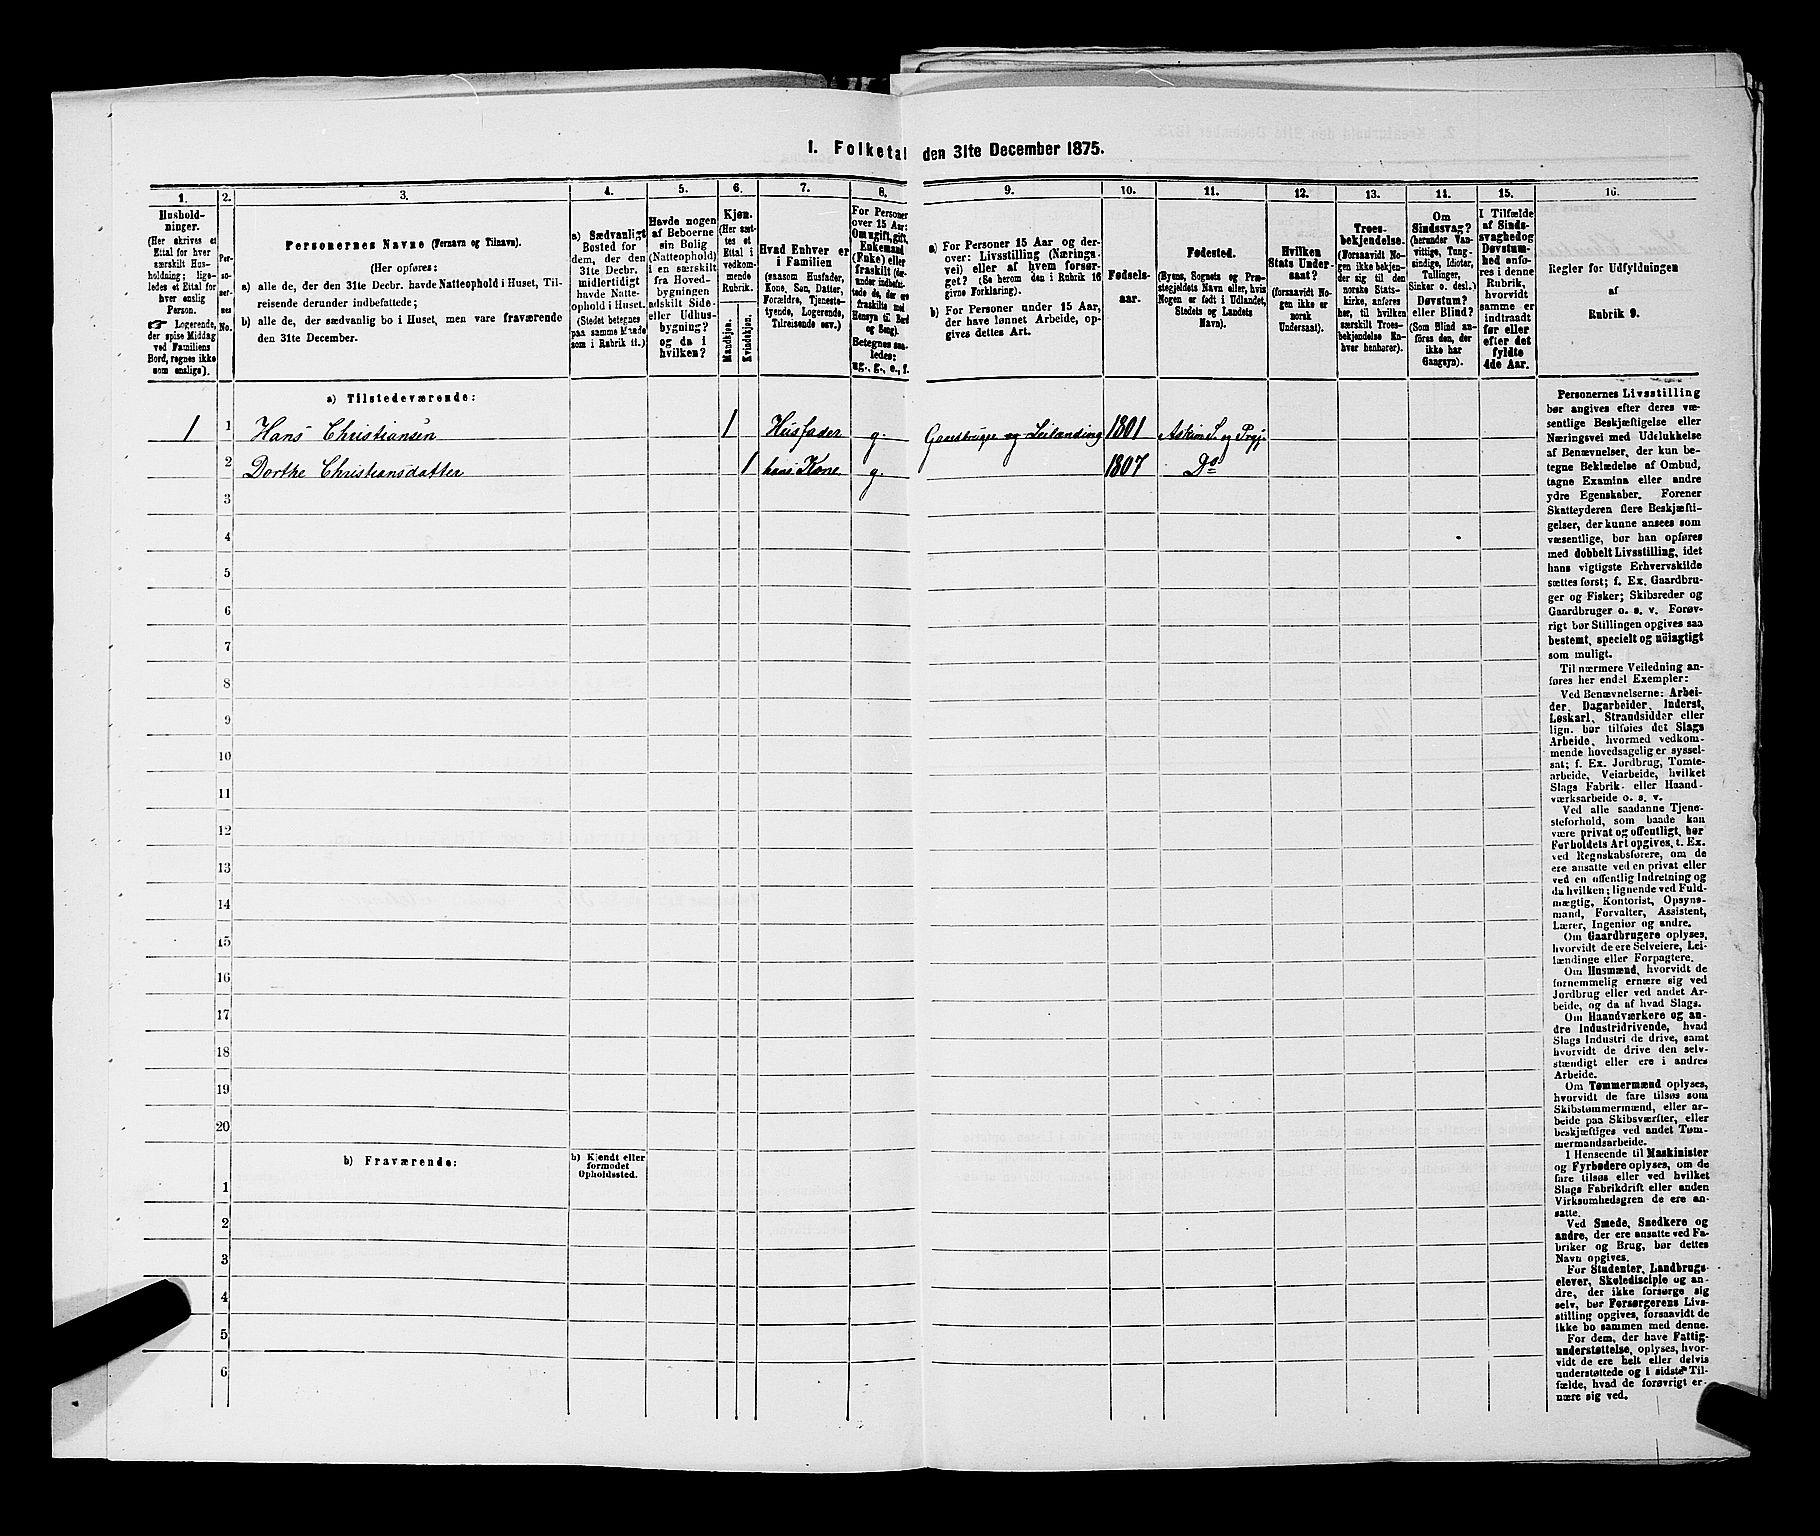 1. Folketal den 31te December 1875.
1.
2.
3.
4.
5.
6.
7.
8.
9.
10.
11.
12.
13.
14.
15.
16.
Hushold-
ninger.
(Her skrives et
Ettal for hver
særskilt Hus-
holdning; lige-
ledes et Ettal for
hver enslig
Person.
☞ Logerende,
der spise Middag
ved Familiens
Bord, regnes ikke
som enslige).
Per-
so-
ner-
nes
No.
Personernes Navne (Fornavn og Tilnavn).
(Her opføres:
a) alle de, der den 31te Decbr. havde Natteophold i Huset, Til-
reisende derunder indbefattede;
b) alle de, der sædvanlig bo i Huset, men vare fraværende
den 31te December.
a) Sædvanligt
Bosted for
dem, der den
31te Decbr.
midlertidigt
havde Natte-
ophold i Huset.
(Stedet betegnes
paa samme Maade
som i Rubrik 11.)
Havde nogen
af Beboerne
sin Bolig
(Natteophold)
i en særskilt
fra Hoved-
bygningen
adskilt Side-
eller Udhus-
bygning?
og da i
hvilken?
Kjøn.
(Her sæt-
tes et
Ettal i
vedkom-
mende
Rubrik.
Mandkjøn.
Kvindekjøn.
Hvad Enhver er
i Familien
(saasom Husfader,
Kone, Søn, Datter,
Forældre, Tjeneste-
tyende, Logerende,
Tilreisende osv.)
For Personer
over 15 Aar:
Om ugift, gift,
Enkemand
(Enke) eller
fraskilt (der-
under indbefat-
tede de, der ere
fraskilte med
Hensyn til Bord
og Seng).
Betegnes saa-
ledes:
ug., g., e., f.
a) For Personer 15 Aar og der-
over: Livsstilling (Nærings-
vei) eller af hvem forsør-
get? (Se herom den i Rubrik 16
givne Forklaring).
b) For Personer under 15 Aar,
der have lønnet Arbeide, op-
gives dettes Art.
Fødsels-
aar.
Fødested.
(Byens, Sognets og Præ-
stegjeldets Navn eller, hvis
Nogen er født i Udlandet,
Stedets og Landets
Navn).
Hvilken
Stats Under-
saat?
(forsaavidt No-
gen ikke er
norsk
Undersaat).
Troes-
bekjendelse.
(Forsaavidt No-
gen ikke bekjen-
der sig til den
norske Stats-
kirke, anføres
her, til hvilken
særskilt Troes-
bekjendelse En-
hver henhører).
Om
Sindssvag?
(herunder Van-
vittige, Tung-
sindige, Idioter,
Tullinger,
Sinker o. desl.)
Døvstum?
eller Blind?
(Som Blind an-
føres den, der
ikke har
Gangsyn).
I Tilfælde
af Sinds-
svaghed og
Døvstum-
hed anfø-
res i denne
Rubrik,
hvorvidt
samme er
indtraadt
før eller
efter det
fyldte
4de Aar.
Regler for Udfyldningen
af
Rubrik 9.
a) Tilstedeværende:
1 1 Hans Christiansen 1 Husfader g. Gaardbruger og Leilænding 1801 Askim S. og Prgj.
2 Dorthe Christiansdatter 1 hans Kone g. 1807 Do
3
4
5
6
7
8
9
10
11
12
13
14
15
16
17
18
19
20
b) Fraværende:
b) Kjendt eller
formodet
Opholdssted.
1
2
3
4
5
6
Personernes Livsstilling
bør angives efter deres væ-
sentlige Beskjæftigelse eller
Næringsvei med Udelukkelse
af Benævnelser, der kun be-
tegne Beklædelse af Ombud,
tagne Examina eller andre
ydre Egenskaber. Forener
Skatteyderen flere Beskjæfti-
gelser, der kunne ansees som
væsentlige, bør han opføres
med dobbelt Livsstilling, idet
hans vigtigste Erhvervskilde
sættes først; f. Ex. Gaardbru-
ger og Fisker; Skibsreder og
Gaardbruger o. s. v. Forøv-
rigt bør Stillingen opgives saa
bestemt, specielt og nöiagtigt
som muligt.
Til nærmere Veiledning an-
føres her endel Exempler:
Ved Benævnelserne: Arbei-
der, Dagarbeider, Inderst,
Løskarl, Strandsidder eller
lign. bør tilføies det Slags
Arbeide, hvormed vedkom-
mende hovedsagelig er syssel-
sat; f. Ex. Jordbrug, Tomte-
arbeide, Veiarbeide, hvilket
Slags Fabrik- eller Haand-
værksarbeide o. s. v.
Ved alle saadanne Tjene-
steforhold, som baade kan
være privat og offentligt, bør
Forholdets Art opgives, t. Ex.
ved Regnskabsførere, om de
ere ansatte ved en privat eller
ved en offentlig Indretning og
da hvilken; lignende ved Fuld-
mægtig, Kontorist, Opsyns-
mand, Forvalter, Assistent,
Lærer, Ingeniør og andre.
Om Gaardbrugere oplyses,
hvorvidt de ere Selveiere, Lei-
lændinge eller Forpagtere.
Om Husmænd, hvorvidt de
fornemmelig ernære sig ved
Jordbrug eller ved andet Ar-
beide, og da af hvad Slags.
Om Haandværkere og an-
dre Industridrivende, hvad
Slags Industri de drive, samt
hvorvidt de drive den selv-
stændigt eller ere i andres
Arbeide.
Om Tømmermænd oplyses,
hvorvidt de fare tilsøs som
Skibstømmermænd, eller ar-
beide paa Skibsværfter, eller
beskjæftiges ved andet Tøm-
mermandsarbeide.
I Henseende til Maskinister
og Fyrbødere oplyses, om de
fare tilsøs eller ved hvilket
Slags Fabrikdrift eller anden
Virksomhedsgren de ere an-
satte.
Ved Smede, Snedkere og
andre, der ere ansatte ved Fa-
briker og Brug, bør dettes
Navn opgives.
For Studenter, Landbrugs-
elever, Skoledisciple og an-
dre, der ikke forsørge sig
selv, bør Forsørgerens Livs-
stilling opgives, forsaavidt de
ikke bo sammen med denne.
For dem, der have Fattig-
understøttelse, oplyses, hvor-
vidt de ere helt eller delvis
understøttede og i sidste Til-
fælde, hvad de forøvrigt er-
nære sig ved.